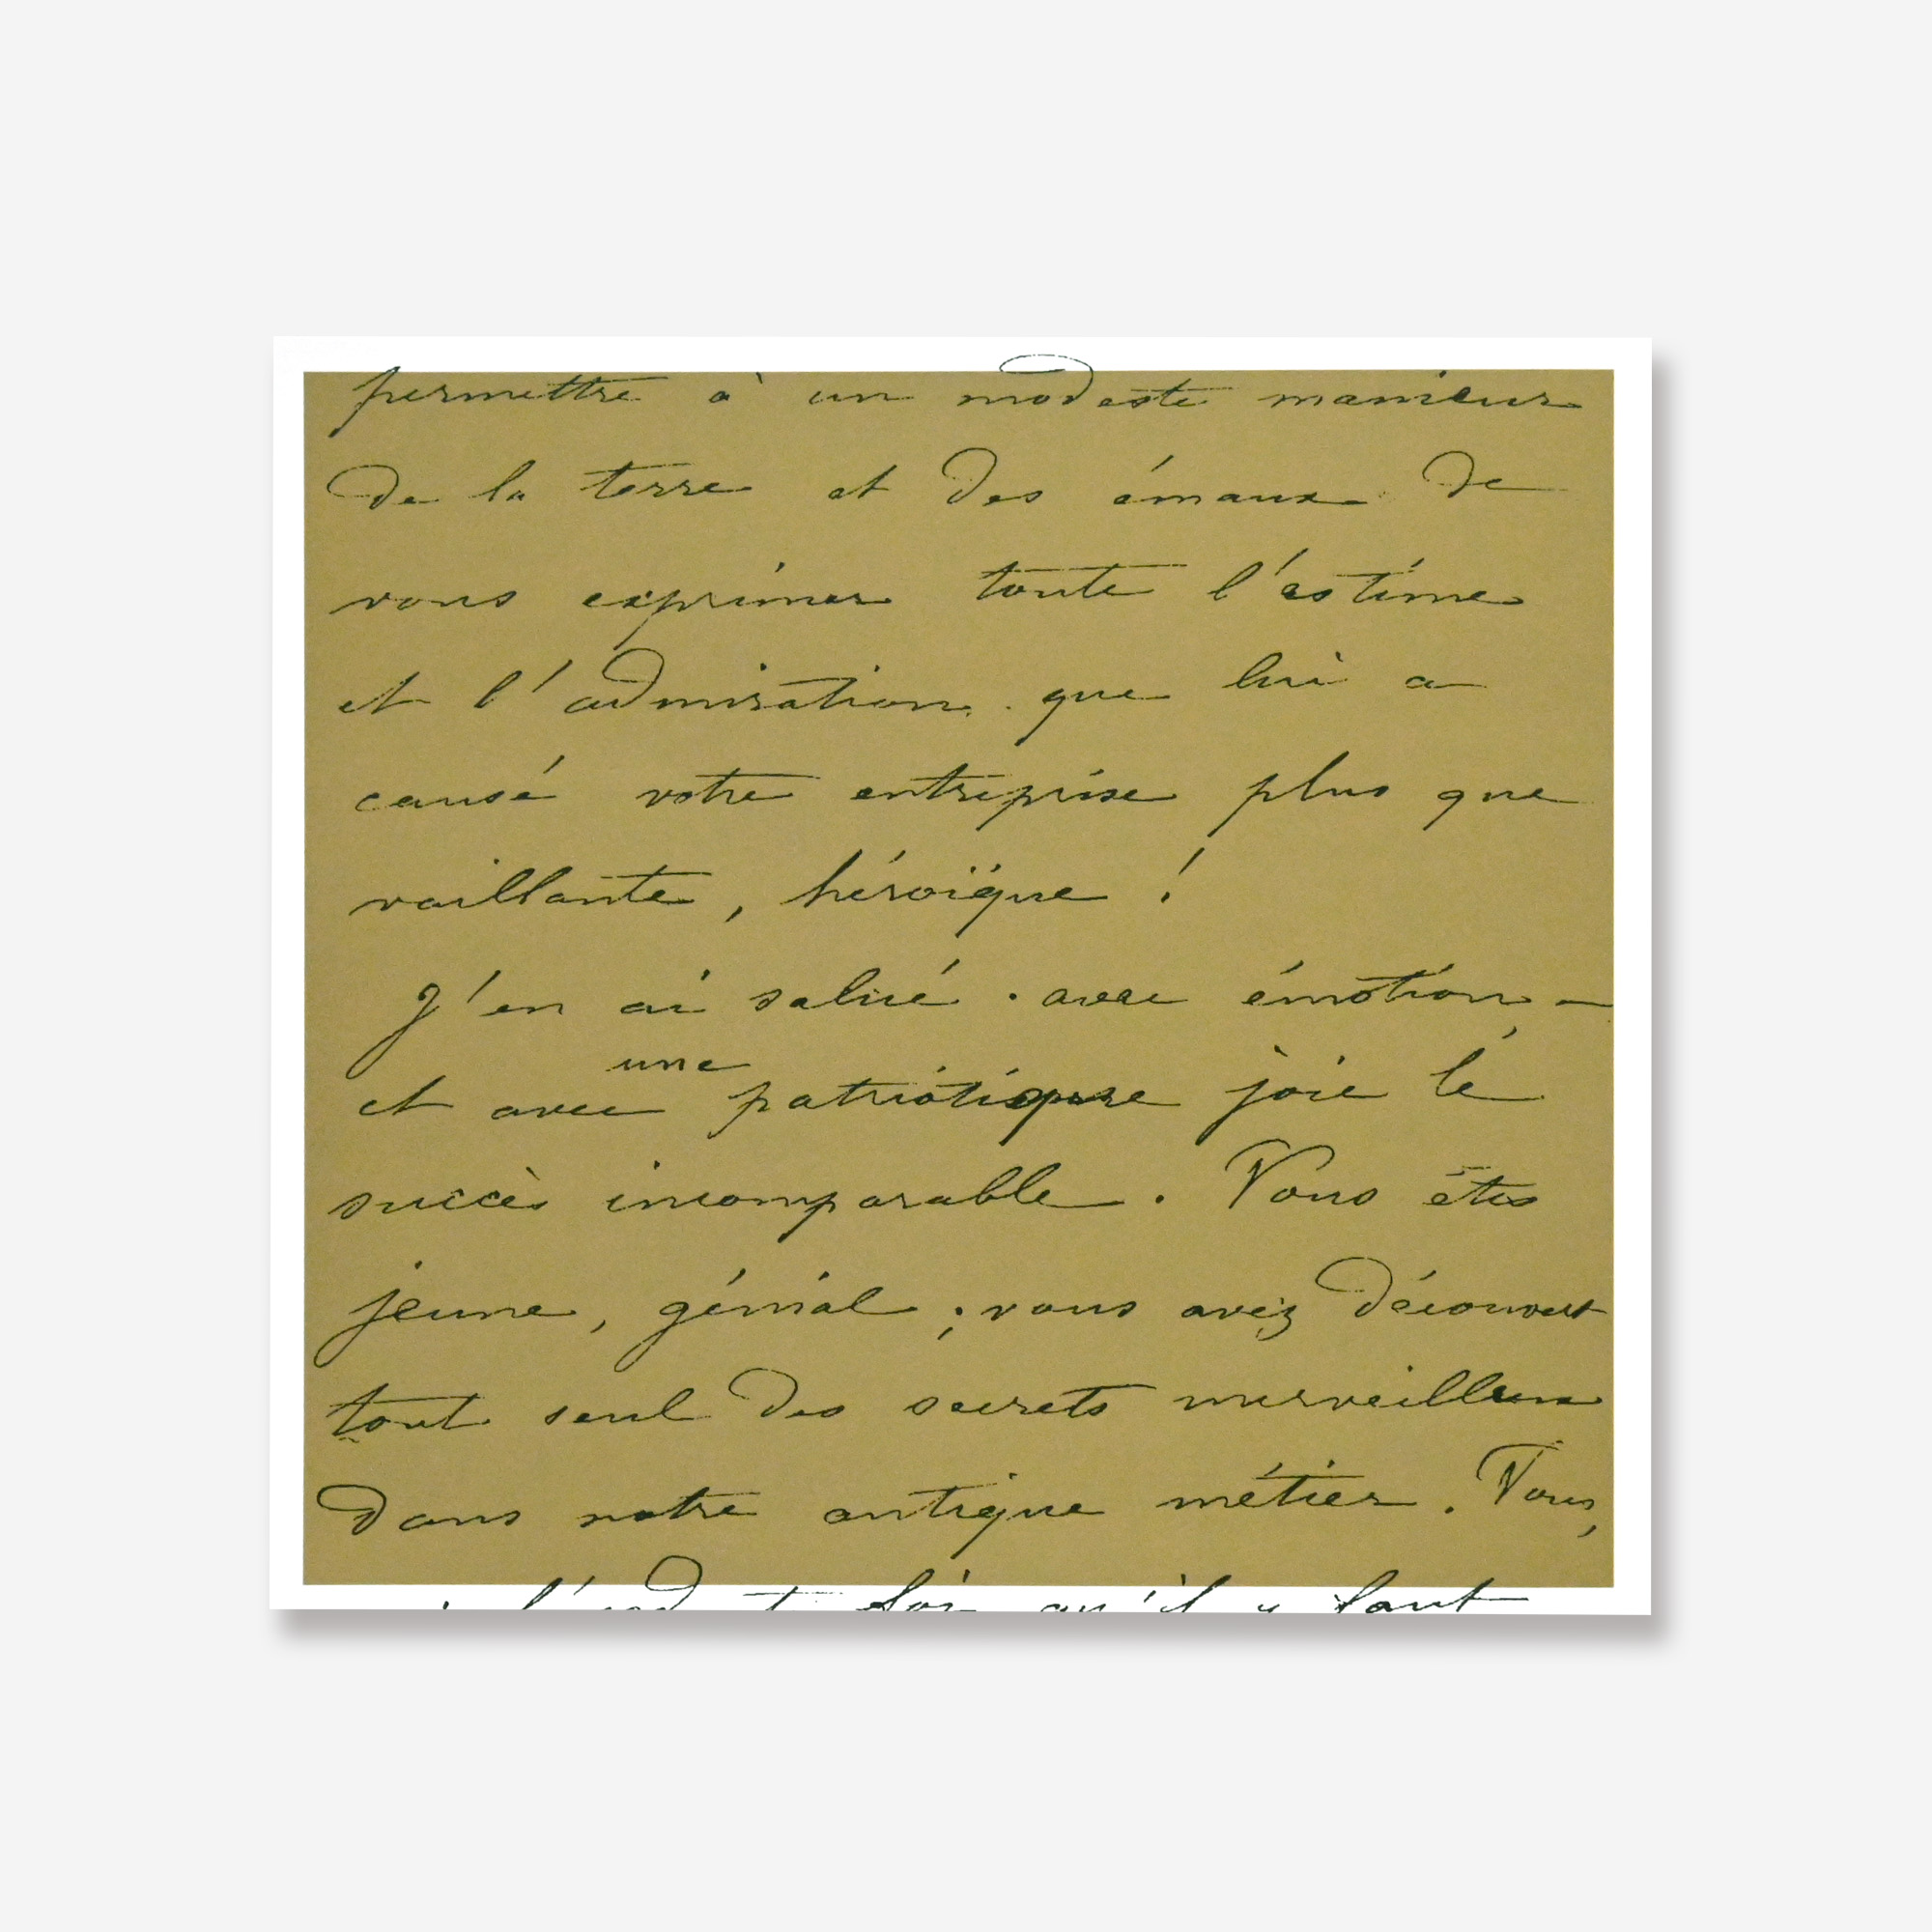 permettre à un modeste manieur
de la terre et des émaux de
vous exprimer toute l'estime
et l'admiration que lui a
causé votre entreprise plus que
vaillante, héroïque !
J'en ai salué avec émotion
une
et avec patriotique joie le
succès incomparable. Vous êtes
jeune, génial ; vous avez découvert
tout seul des secrets merveilleux
dans notre antique métier. Vous,
qu'il y faut